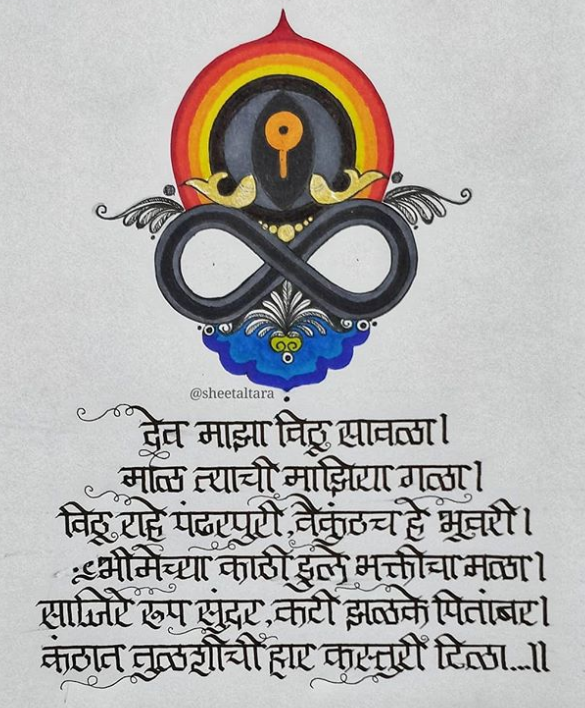 @sheetaltara
देव माझा विठू सावळा।
माळ त्याची माझिया गळा।
विठू राहे पंढरपुरी, वैकुंठच हे भूवरी।
भीमेच्या काठी डुले भक्तीचा मळा।
साजिरे रूप सुंदर, कटी झळके पितांबर।
कंठात तुळशीची हार कस्तुरी टिळा...॥